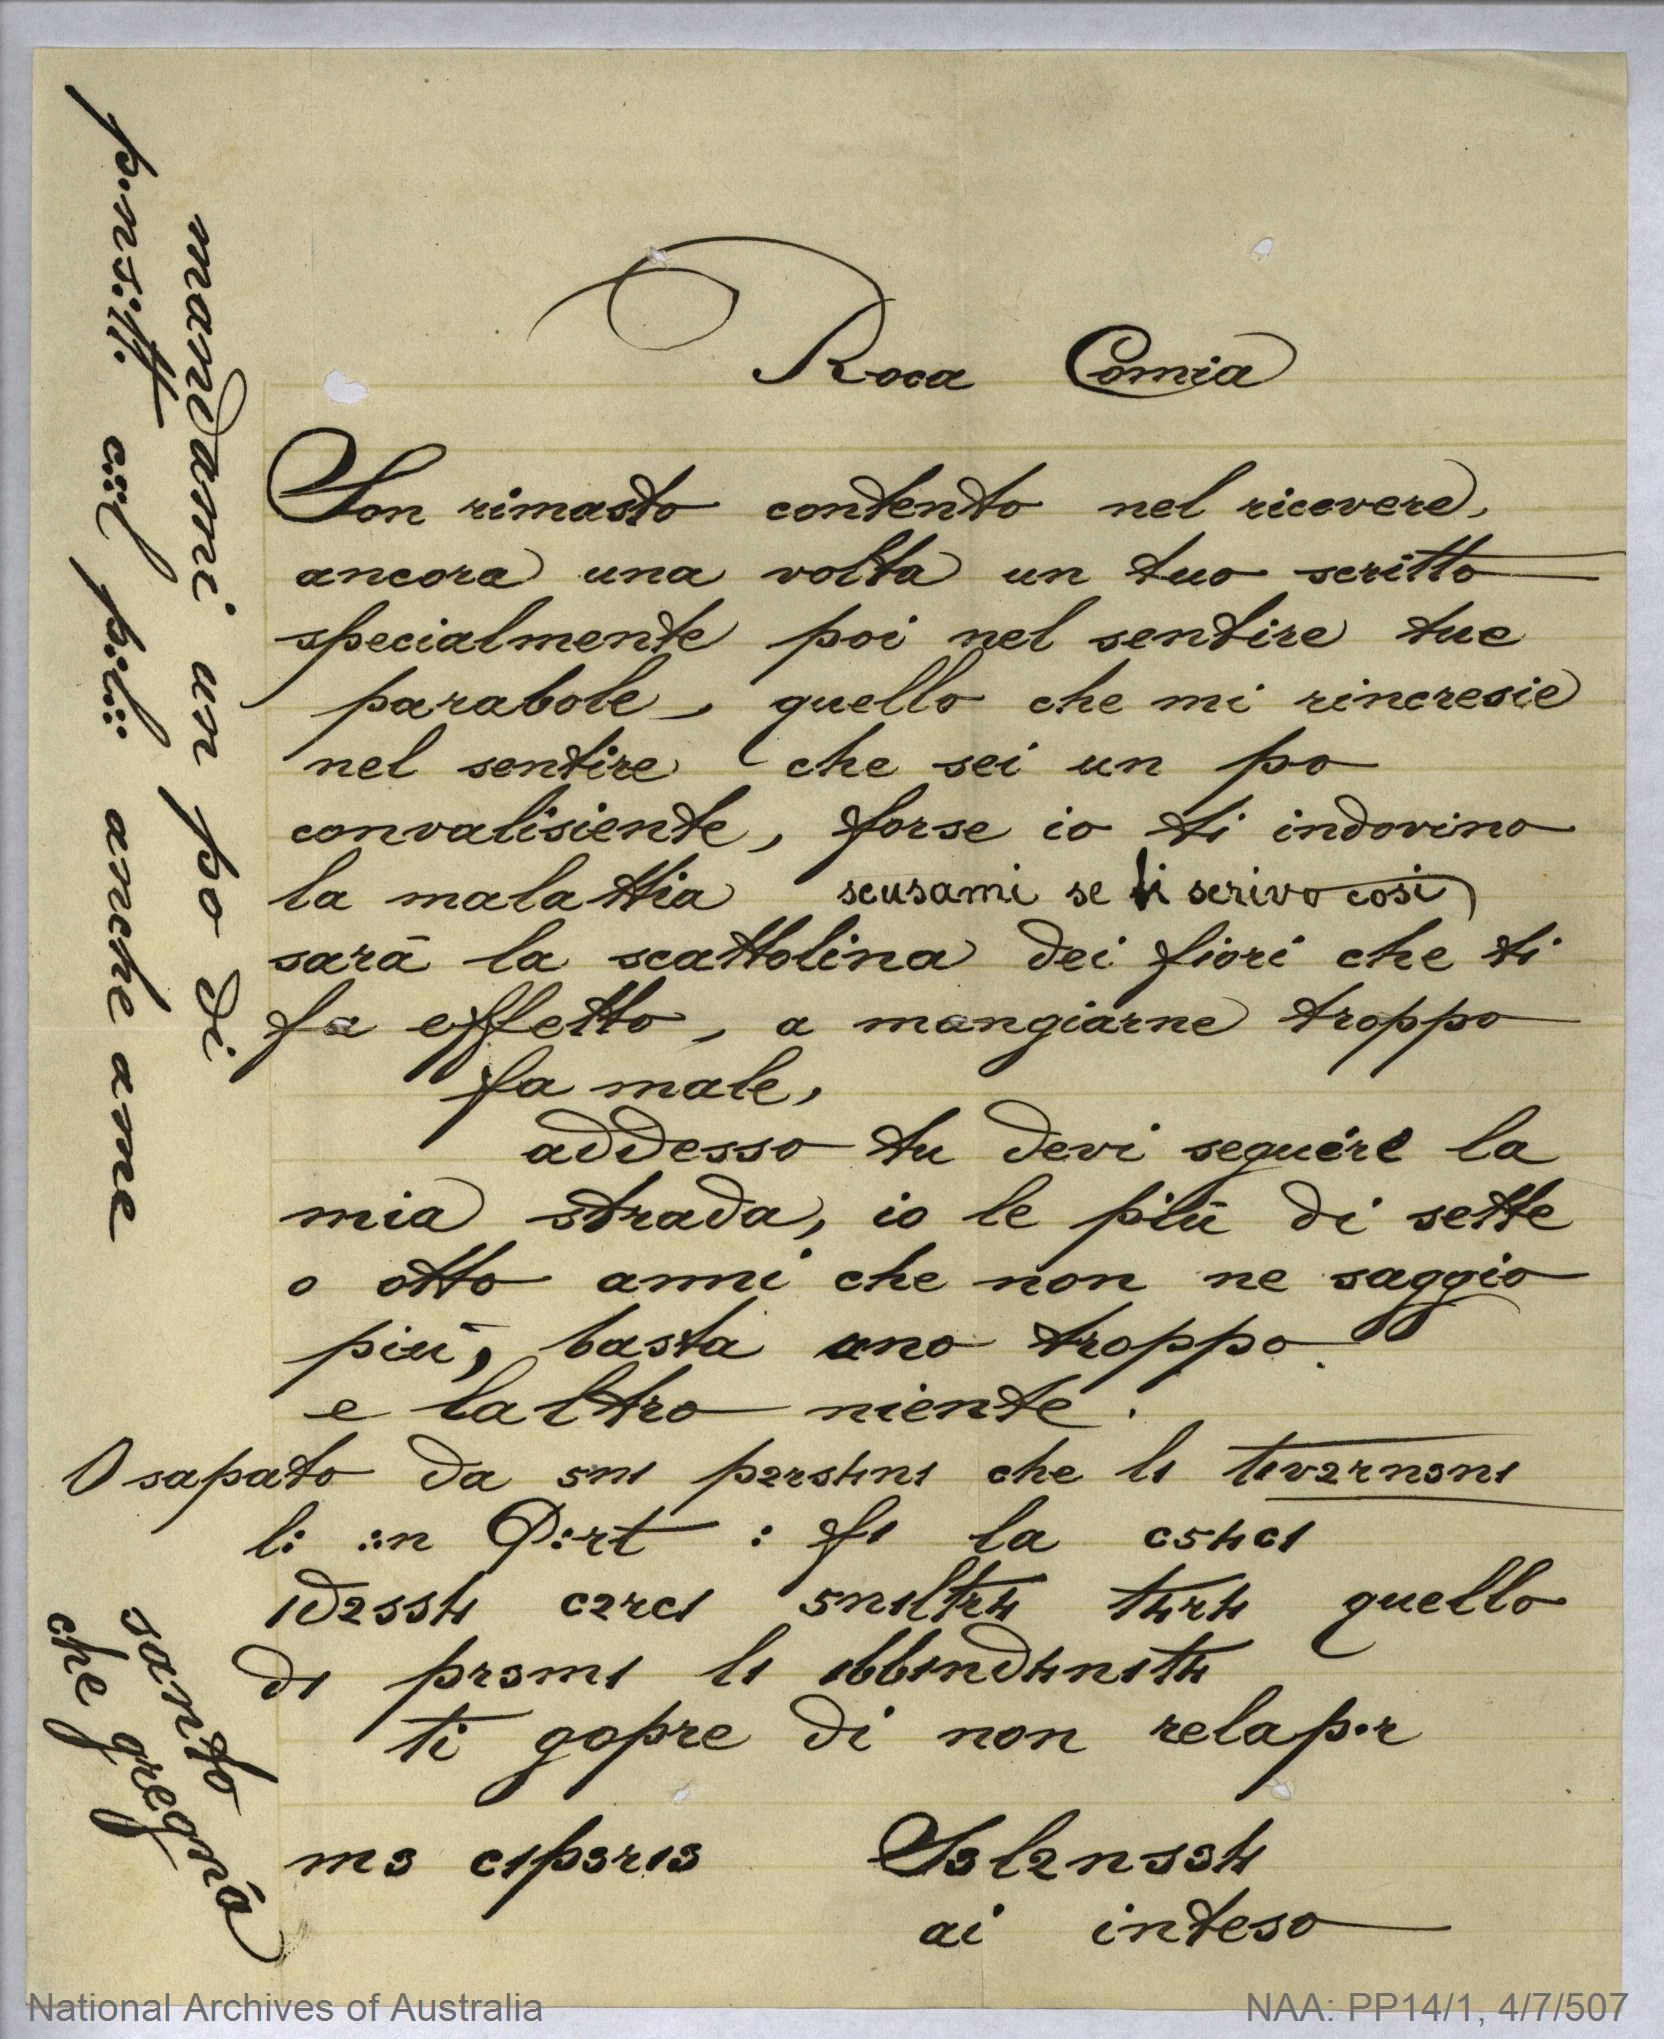 Roca Comia
Son rimasto contento nel ricevere,
ancora una volta un tuo scritto
specialmente poi nel sentire tue
parabole, quello che mi rincresie
nel sentire che sei un po
convalisiente, forse io ti indovino
la malattia scusami se ti scrivo cosi
sarā la scattolina dei fiori che ti
fa effetto, a mangiarne troppo
fa male,
addesso tu devi seguire la
mia strada, io le piū di sette
o otto anni che non ne saggio
piū, basta uno troppo.
e laltro niente.
O sapato da 5n1 p2rs4n1 che l1 t1v2rn3n1
l: :n P:rt : f1 la c54c1
1d2ss4 c2rc1 5n1ltr4 t4r4 quello
d1 pr3m1 l1 1bb1nd4n1t4
ti gopre di non relap.r
m3 c1p3r13 S3l2ns34
ai inteso
mandami un po di
anche ame
santo
che gregnā
National Archives of Australia
NAA: PP14/1, 4/7/507